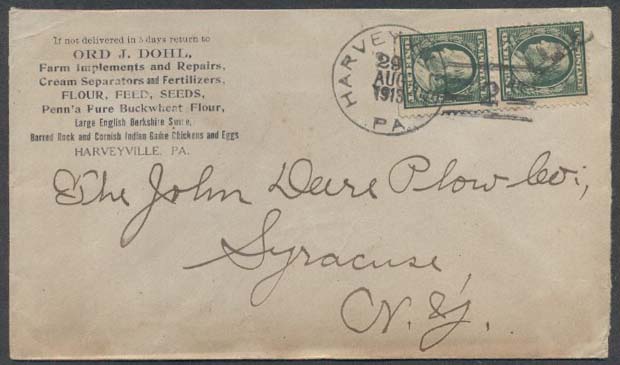 If not delivered in 5 days return to
ORD J. DOHL,
Farm Implements and Repairs,
Cream Separators and Fertilizers,
FLOUR, FEED, SEEDS,
Penn'a Pure Buckwheat Flour,
Large English Berkshire Swine,
Barred Rock and Cornish Indian Game Chickens and Eggs
HARVEYVILLE, PA.
29
AUG
1913
PA.
The John Deere Plow Co.,
Syracuse
N. Y.